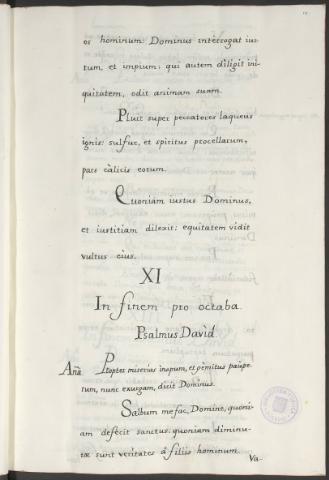 os hominum: Dominus intèrrogat ius-
tum, et impium; qui autem dìligit ini-
quitatem, odit animam suam.
Pluit super peccatores laqueus
ignis: sulfur, et spiritus procellarum,
pars càlicis eorum.
Quoniam iustus Dominus,
et iustitiam dilexit: equitatem vidit
vultus eius.
XI
In finem pro octaba.
Psalmus David
Añã Propter miserias inopum, et gèmitus paupe-
rum, nunc exurgam, dicit Dominus.
Salbum me fac, Domine, quoni-
am defècit sanctus: quoniam diminu-
tæ sunt veritates à filiis hominum.
Va-